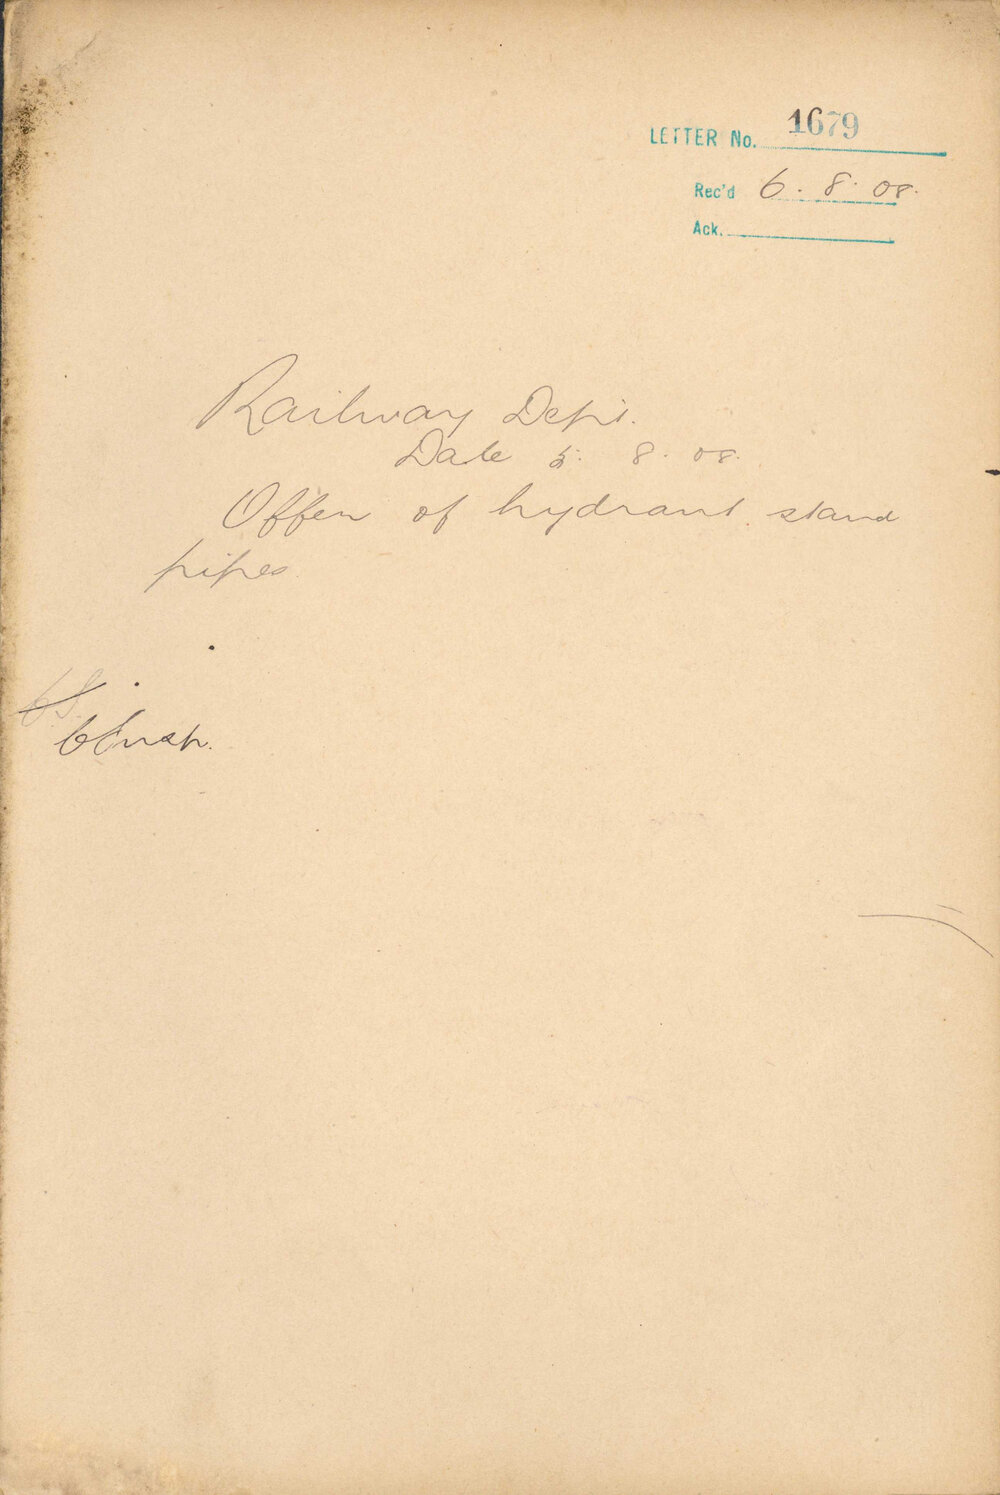 LETTER No. 1679
Rec'd 6. 8. 08.
Ack.
Railway Dept.
Date 5. 8. 08.
Offer of hydrant stand
pipes